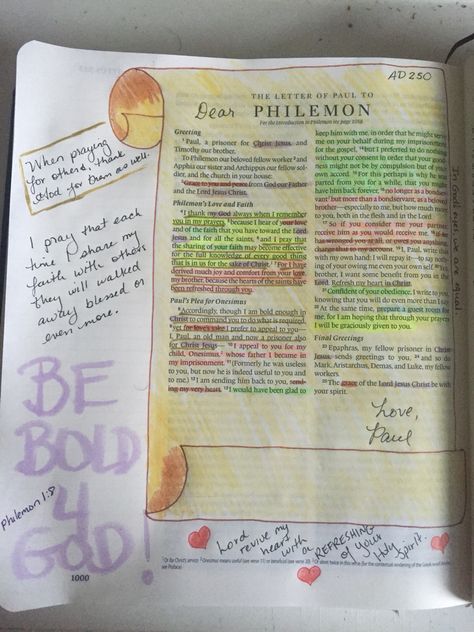 AD 250
THE LETTER OF PAUL TO
Dear PHILEMON
For the introduction to Philemon see page 1098
When praying
for others, thank
God for them as well.
I pray that each
time I share my
faith with others
they will walked
away blessed or
even more.
BE
BOLD
4
GOD!
Philemon 1:8
Greeting
1 Paul, a prisoner for Christ Jesus, and
Timothy our brother,
To Philemon our beloved fellow worker 2 and
Apphia our sister and Archippus our fellow sol-
dier, and the church in your house:
3 Grace to you and peace from God our Father
and the Lord Jesus Christ.
Philemon's Love and Faith
4 I thank my God always when I remember
you in my prayers, 5 because I hear of your love
and of the faith that you have toward the Lord
Jesus and for all the saints, 6 and I pray that
the sharing of your faith may become effective
for the full knowledge of every good thing
that is in us for the sake of Christ. 7 For I have
derived much joy and comfort from your love,
my brother, because the hearts of the saints have
been refreshed through you.
Paul's Plea for Onesimus
8 Accordingly, though I am bold enough in
Christ to command you to do what is required,
9 yet for love's sake I prefer to appeal to you—
I, Paul, an old man and now a prisoner also
for Christ Jesus— 10 I appeal to you for my
child, Onesimus, whose father I became in
my imprisonment. 11 (Formerly he was useless
to you, but now he is indeed useful to you and
to me.) 12 I am sending him back to you, send-
ing my very heart. 13 I would have been glad to
keep him with me, in order that he might serve
me on your behalf during my imprisonment
for the gospel, 14 but I preferred to do nothing
without your consent in order that your good-
ness might not be by compulsion but of your
own accord. 15 For this perhaps is why he was
parted from you for a while, that you might
have him back forever, 16 no longer as a bond-
servant but more than a bondservant, as a beloved
brother—especially to me, but how much more
to you, both in the flesh and in the Lord.
17 So if you consider me your partner,
receive him as you would receive me. 18 If he
has wronged you at all, or owes you anything,
charge that to my account. 19 I, Paul, write this
with my own hand: I will repay it—to say noth-
ing of your owing me even your own self. 20 Yes,
brother, I want some benefit from you in the
Lord. Refresh my heart in Christ.
21 Confident of your obedience, I write to you,
knowing that you will do even more than I say.
22 At the same time, prepare a guest room for
me, for I am hoping that through your prayers
I will be graciously given to you.
Final Greetings
23 Epaphras, my fellow prisoner in Christ
Jesus, sends greetings to you, 24 and so do
Mark, Aristarchus, Demas, and Luke, my fellow
workers.
25 The grace of the Lord Jesus Christ be with
your spirit.
Love,
Paul
In God eyes we are equal.
Lord revive my
heart with a REFRESHING
of your
Holy Spirit.
1000